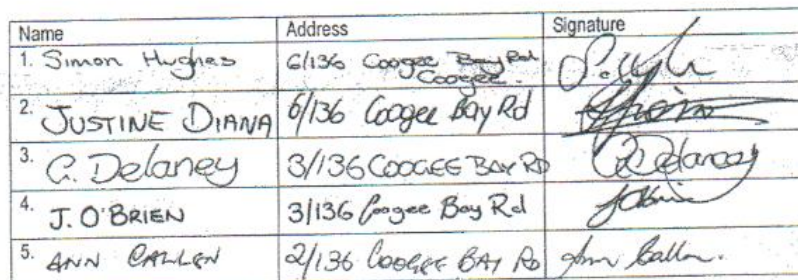 Name Address Signature
1. Simon Hughes 6/136 Coogee Bay Rd
Coogee.
2. JUSTINE DIANA 6/136 Coogee Bay Rd
3. C. Delaney 3/136 COOGEE BAY RD C Delaney
4. J. O'BRIEN 3/136 Coogee Bay Rd
5. ANN CALLEN 2/136 COOGEE BAY RD Ann Callen.